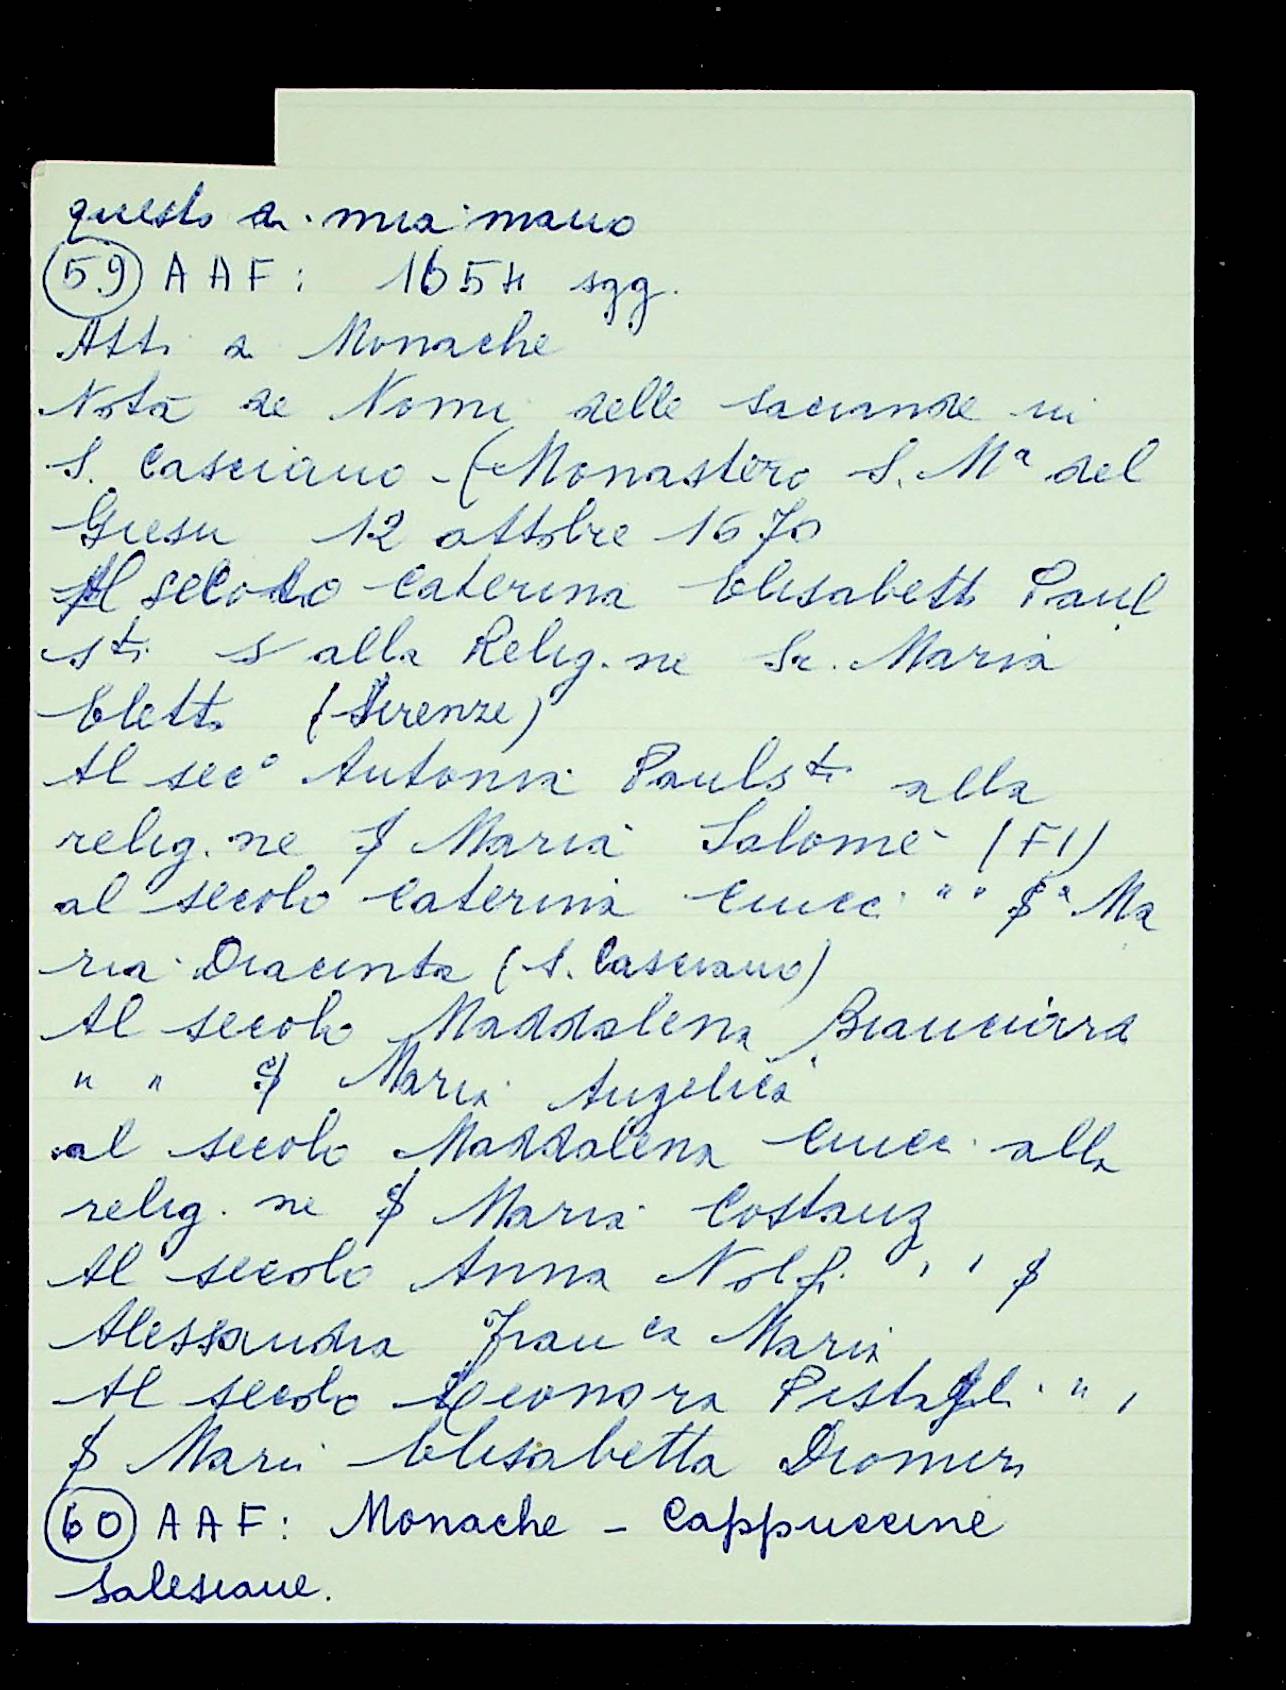 questo di mia mano
59 A A F : 1654 sgg.
Atti di Monache
Nota de Nomi delle sacrande in
S. Casciano - (Monastero S. Mª del
Giesu 12 ottobre 1670
Al secolo Caterina Elisabetta Paul
sti alla Relig.ne Sr. Maria
Eletta (Firenze)
Al secº Antonia Paulsti alla
relig.ne S Maria Salome (FI)
al secolo Caterina Cinci " " Sª Ma
ria Diacinta (S. Casciano)
Al secolo Maddalena
" " S Maria Angelica
al secolo Maddalena Cinci alla
relig.ne S Maria Costanz
Al secolo Anna Nolfi " " S
Alessandra Franca Maria
Al secolo Leonora " "
S Maria Elisabetta
60 A A F : Monache - Cappuccine
Salesiane.